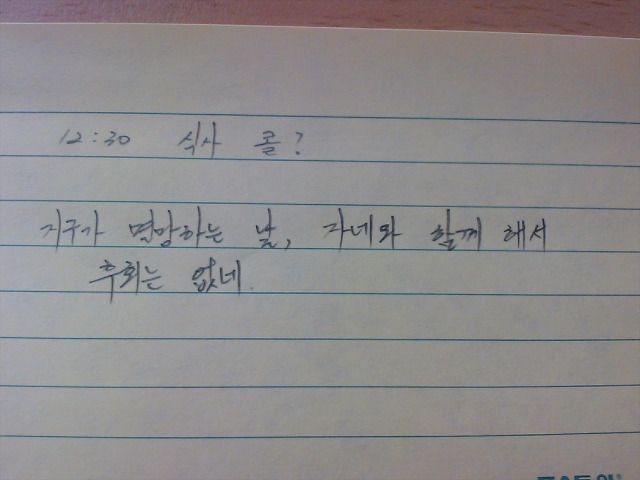 12:30 식사 콜?
지구가 멸망하는 날, 자네와 함께 해서
후회는 없네.
포스트잇®